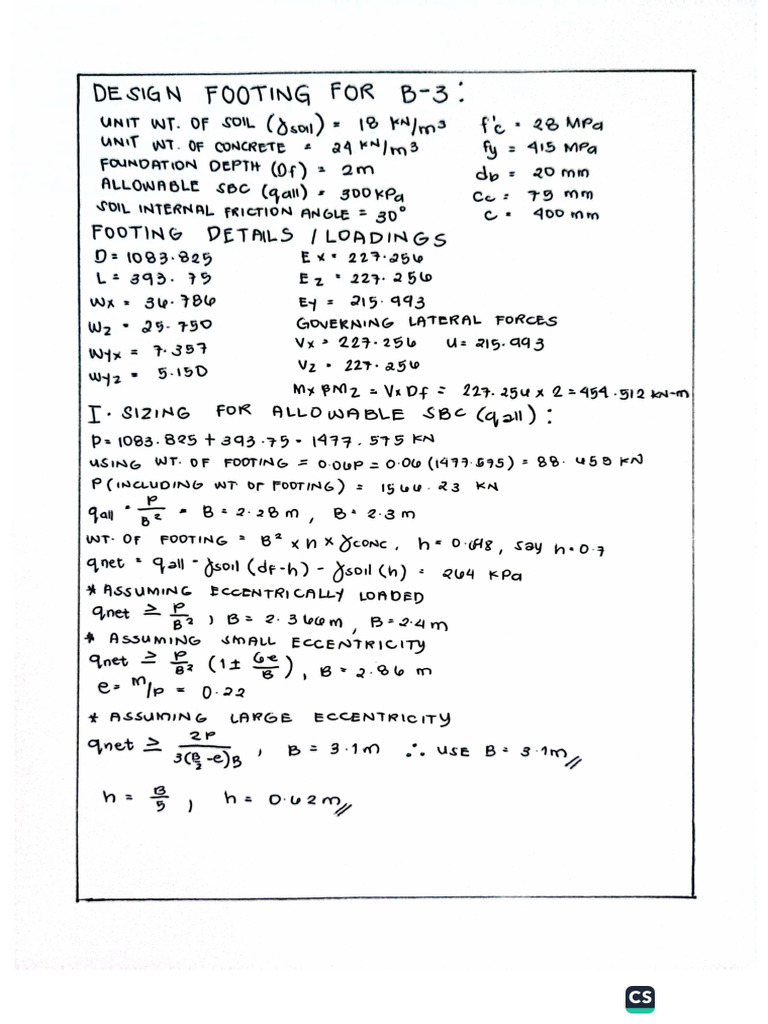 DESIGN FOOTING FOR B-3:
UNIT WT. OF SOIL (γsoil) = 18 KN/m³ f'c = 28 MPa
UNIT WT. OF CONCRETE = 24 KN/m³ fy = 415 MPa
FOUNDATION DEPTH (Df) = 2m db = 20 mm
ALLOWABLE SBC (qall) = 300KPa Cc = 75 mm
SOIL INTERNAL FRICTION ANGLE = 30° c = 400 mm
FOOTING DETAILS / LOADINGS
D = 1083.825 Ex = 227.256
L = 393.75 Ez = 227.256
Wx = 36.786 Ey = 215.993
Wz = 25.750 GOVERNING LATERAL FORCES
Wyx = 7.357 Vx = 227.256 U = 215.993
Wyz = 5.150 Vz = 227.256
Mx & Mz = VxDf = 227.256 x 2 = 454.512 KN-m
I. SIZING FOR ALLOWABLE SBC (qall):
P = 1083.825 + 393.75 = 1477.575 KN
USING WT. OF FOOTING = 0.06P = 0.06 (1477.575) = 88.458 KN
P (INCLUDING WT OF FOOTING) = 1566.23 KN
qall = P/B² = B = 2.28 m, B = 2.3 m
WT. OF FOOTING = B² x h x γCONC, h = 0.698, say h = 0.7
qnet = qall - γsoil (df-h) - γsoil (h) = 264 KPa
* ASSUMING ECCENTRICALLY LOADED
qnet ≥ P/B², B = 2.366m, B = 2.4m
* ASSUMING SMALL ECCENTRICITY
qnet ≥ P/B² (1 ± 6e/B), B = 2.86 m
e = M/P = 0.22
* ASSUMING LARGE ECCENTRICITY
qnet ≥ 2P/3(B/2-e)B, B = 3.1m ∴ USE B = 3.1m//
h = B/5, h = 0.62m//
CS